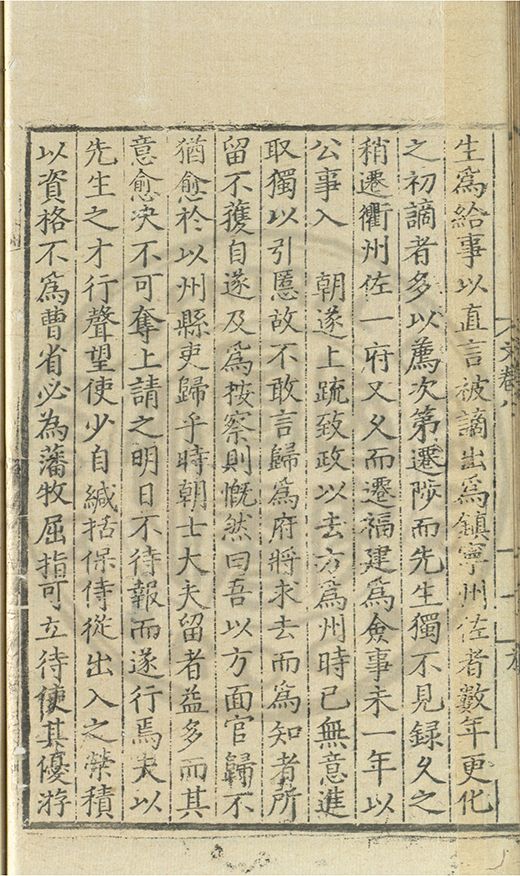 生爲給事以直言被謫出爲鎮寧州佐者數年更化
之初謫者多以薦次第遷陟而先生獨不見録久之
稍遷衢州佐一府又久而遷福建爲僉事未一年以
公事入　朝遂上疏致政以去方爲州時已無意進
取獨以引慝故不敢言歸爲府將求去而爲知者所
留不獲自遂及爲按察則慨然曰吾以方面官歸不
猶愈於以州縣吏歸乎時朝士大夫留者益多而其
意愈决不可奪上請之明日不待報而遂行焉夫以
先生之才行聲望使少自緘括保侍從出入之榮積
以資格不爲曹省必為藩牧屈指可立待使其優游
文卷八